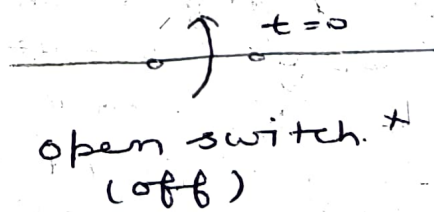 t=0
open switch.
(off)